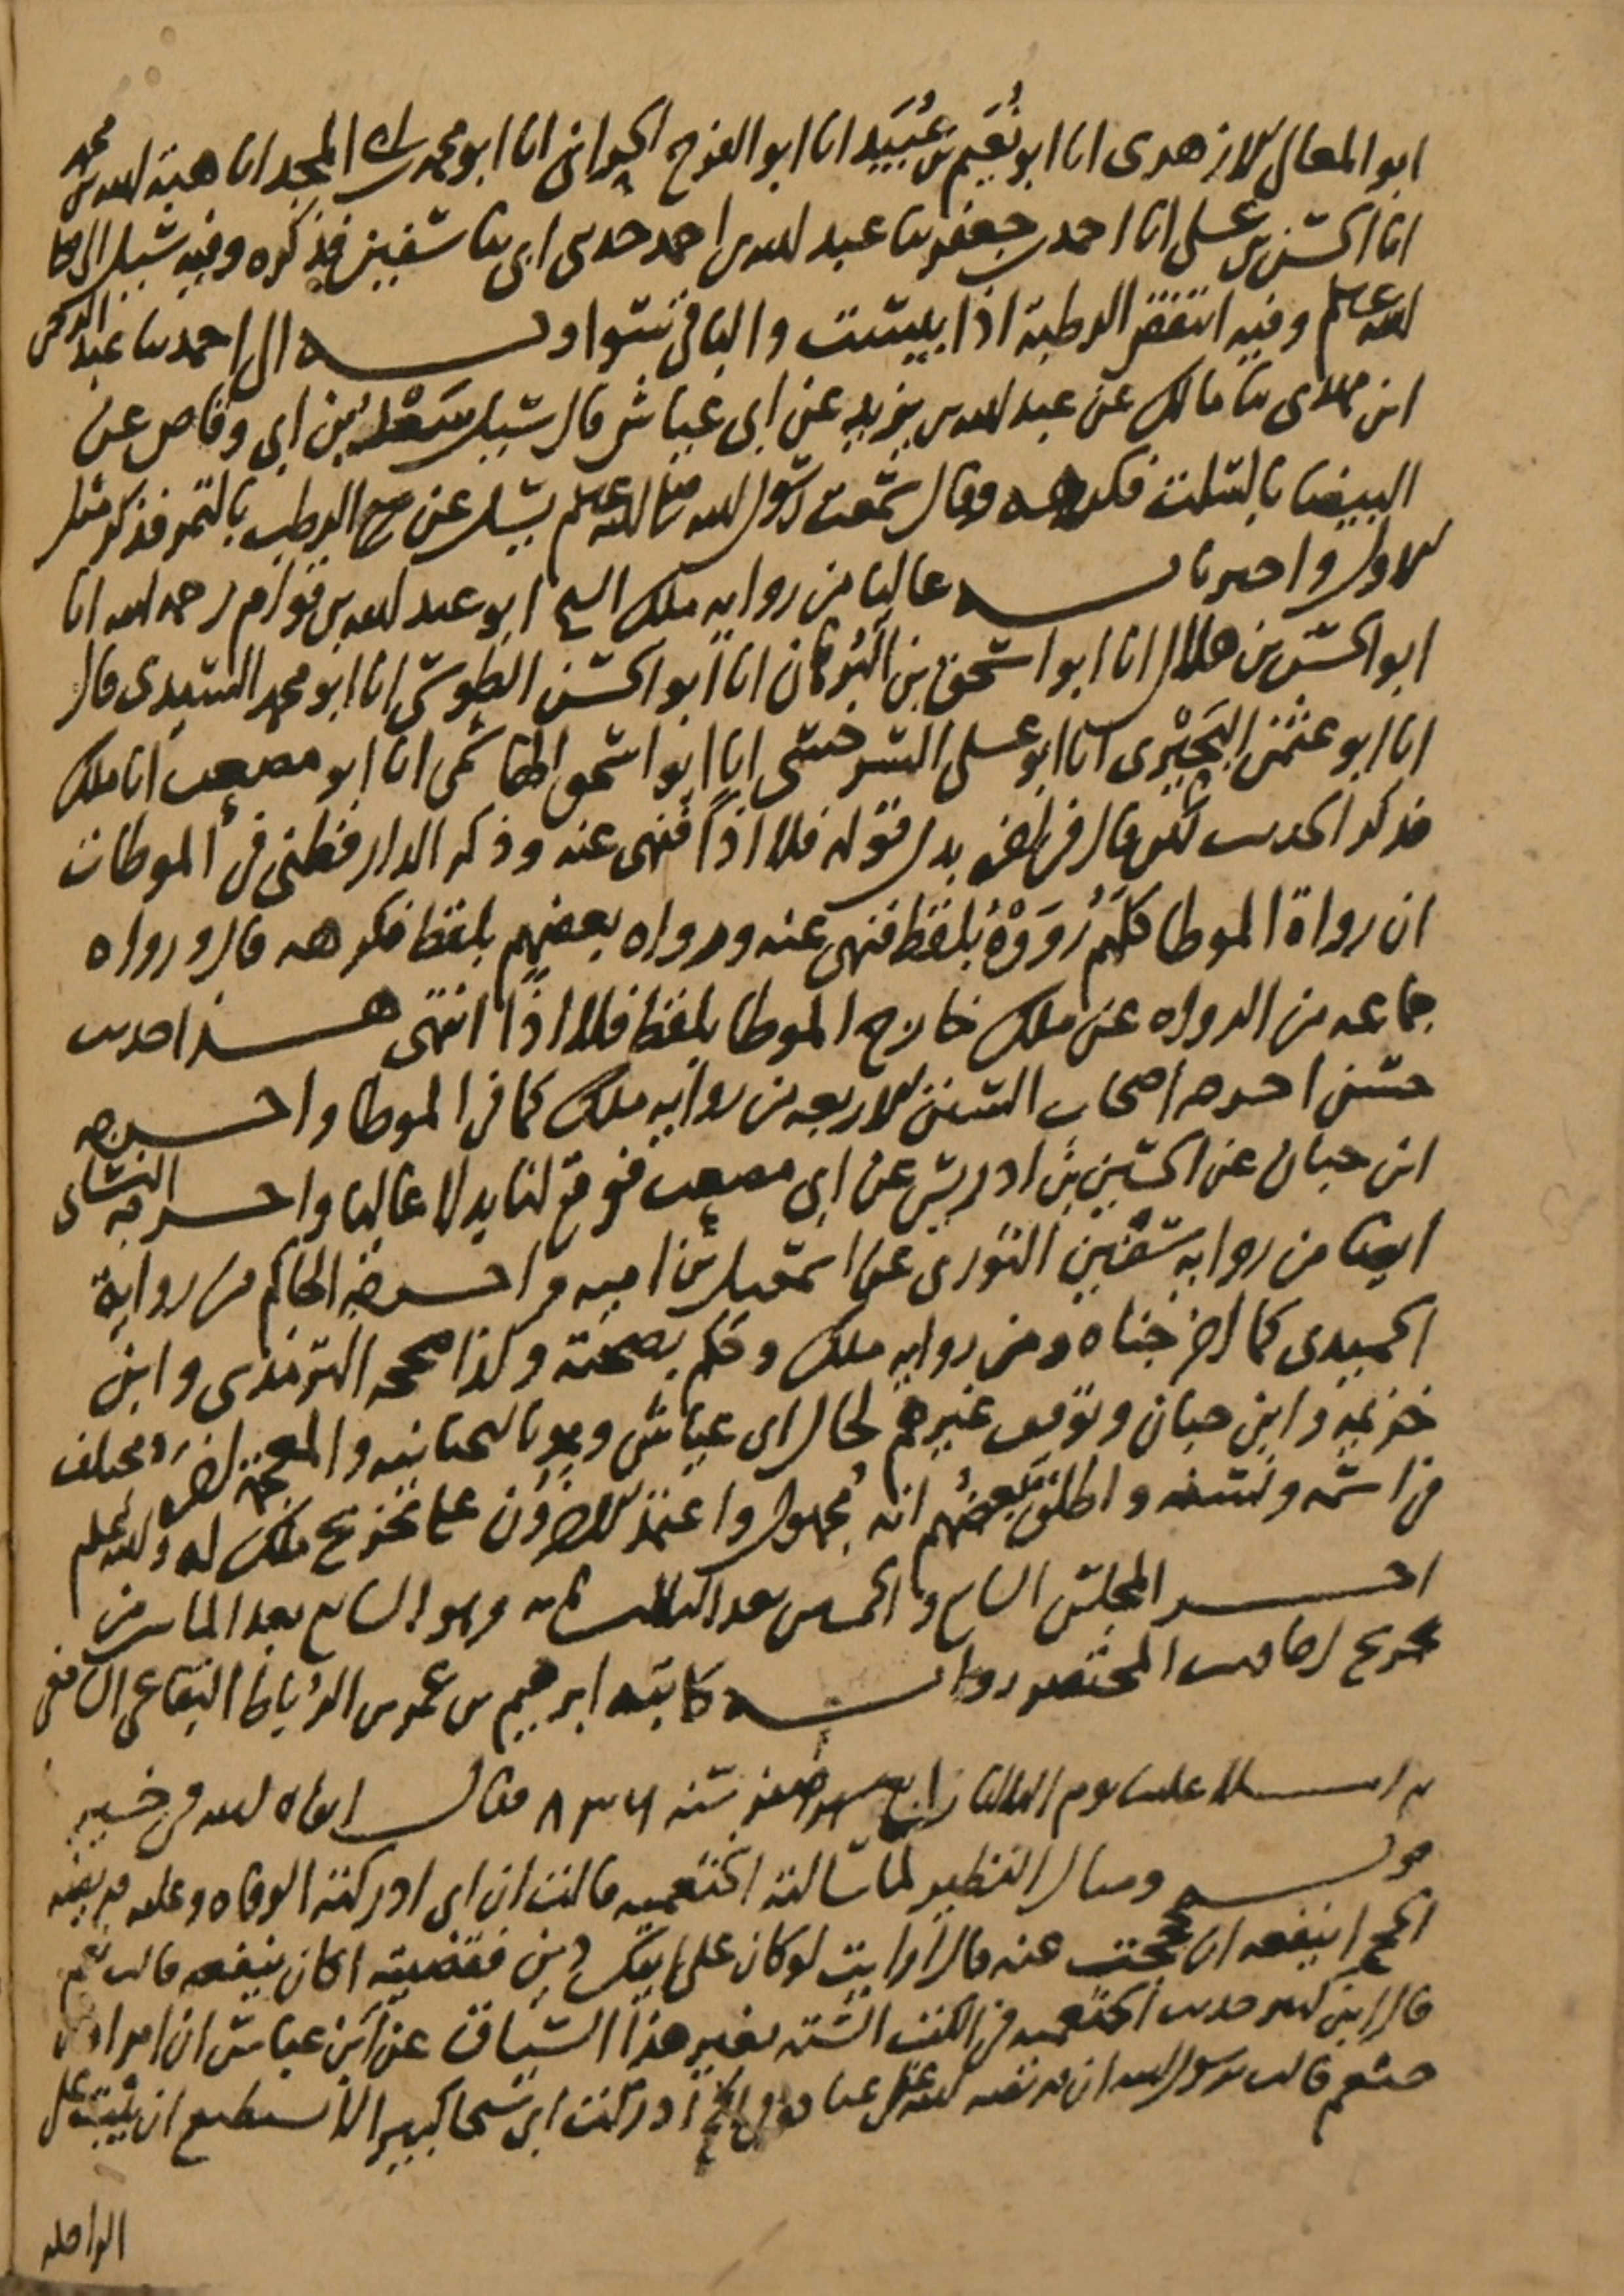 ابو المعالى الازهرى انا ابو نُعَيم بن عُبَيد انا ابو الفرج الحرانى انا ابو محمد بن المجد انا هبة الله بن محمد
انا الحسن بن على انا احمد بن جعفر ثنا عبد الله بن احمد حدثنى ابى ثنا سفين فذكره وفيه سئل
الله عليه وسلم وفيه اتنقص الرطبة اذا يبست والباقى سواء وبه الى احمد ثنا عبد الرحمن
ابن مهدى ثنا مالك عن عبد الله بن يزيد عن ابى عياش قال سئل سَعْد بن ابي وقاص عن
البيضا بالسلت فكرهه وقال سمعت رسول الله صلى الله عليه وسلم يسئل عن الرطب بالتمر فذكر مثل
الاول واخبرنا به عاليا من رواية ملك الشيخ ابو عبد الله بن قوام رحمه الله انا
ابو الحسن بن هلال انا ابو اسحق بن البُرهان انا ابو الحسن الطوسى انا ابو محمد السيدى قال
انا ابو عثمن البَحِيْرى انا ابو على السرخسى انا ابو اسحق الهاشمى انا ابو مصعب انا ملك
فذكر الحديث لكن قال فى اخره بدل قوله فلا اذًا فنهى عنه وذكر الدارقطنى فى الموطات
ان رواة الموطا كلهم رَوَوْهُ بلفظ فنهى عنه ورواه بعضهم بلفظ فكرهه قال ورواه
جماعه من الرواه عن ملك خارج الموطا بلفظ فلا اذًا انتهى هذا حديث
حسن اخرجه اصحاب السنن الاربعه من رواية ملك كما فى الموطا واخرجه
ابن حبان عن الحسين بن ادريس عن ابى مصعب فوقع لنا بدلا عاليا واخرجه النسائى
ايضا من رواية سفين الثورى عن اسمعيل بن اميه واخرجه الحاكم من رواية
الحميدى كما اخرجناه ومن رواية ملك وحكم بصحته وكذا صححه الترمذى وابن
خزيمة وابن حبان وتوقف غيرهم لحال ابى عياش وهو بالتحتانيه والمعجمة اخره مختلف
فى اسمه ونسبه واطلق بعضُهم انه مُجهول واعتمد الاخرون على تخريج ملك له والله اعلم
اخر المجلس السابع والخمسين بعد الثلاثمائة وهو السابع بعد المائتين من
تخريج احاديث المختصر رواية كاتبه ابرهيم بن عمر بن الرُباط البقاعى الشافعى
ثم املا علينا يوم الثلاثا رابع شهر صفر سنه ٨٣٦ فقال ابقاه الله فى خير
قوله ومثال النظير لما سالته الخثعميه قالت ان ابى ادركته الوفاه وعليه فريضة
الحج اينفعه ان حججت عنه قال ارايت لو كان على ابيك دين فقضيته اكان ينفعه قالت نعم
قال ابن كثير حديث الخثعميه فى الكتب الستة بغير هذا السياق عن ابن عباس ان امراة من
خثعم قالت يرسول الله ان فريضه الله على عباده فى الحج ادركت ابى شيخا كبيرا لا يستطيع ان يثبت على
الراحله